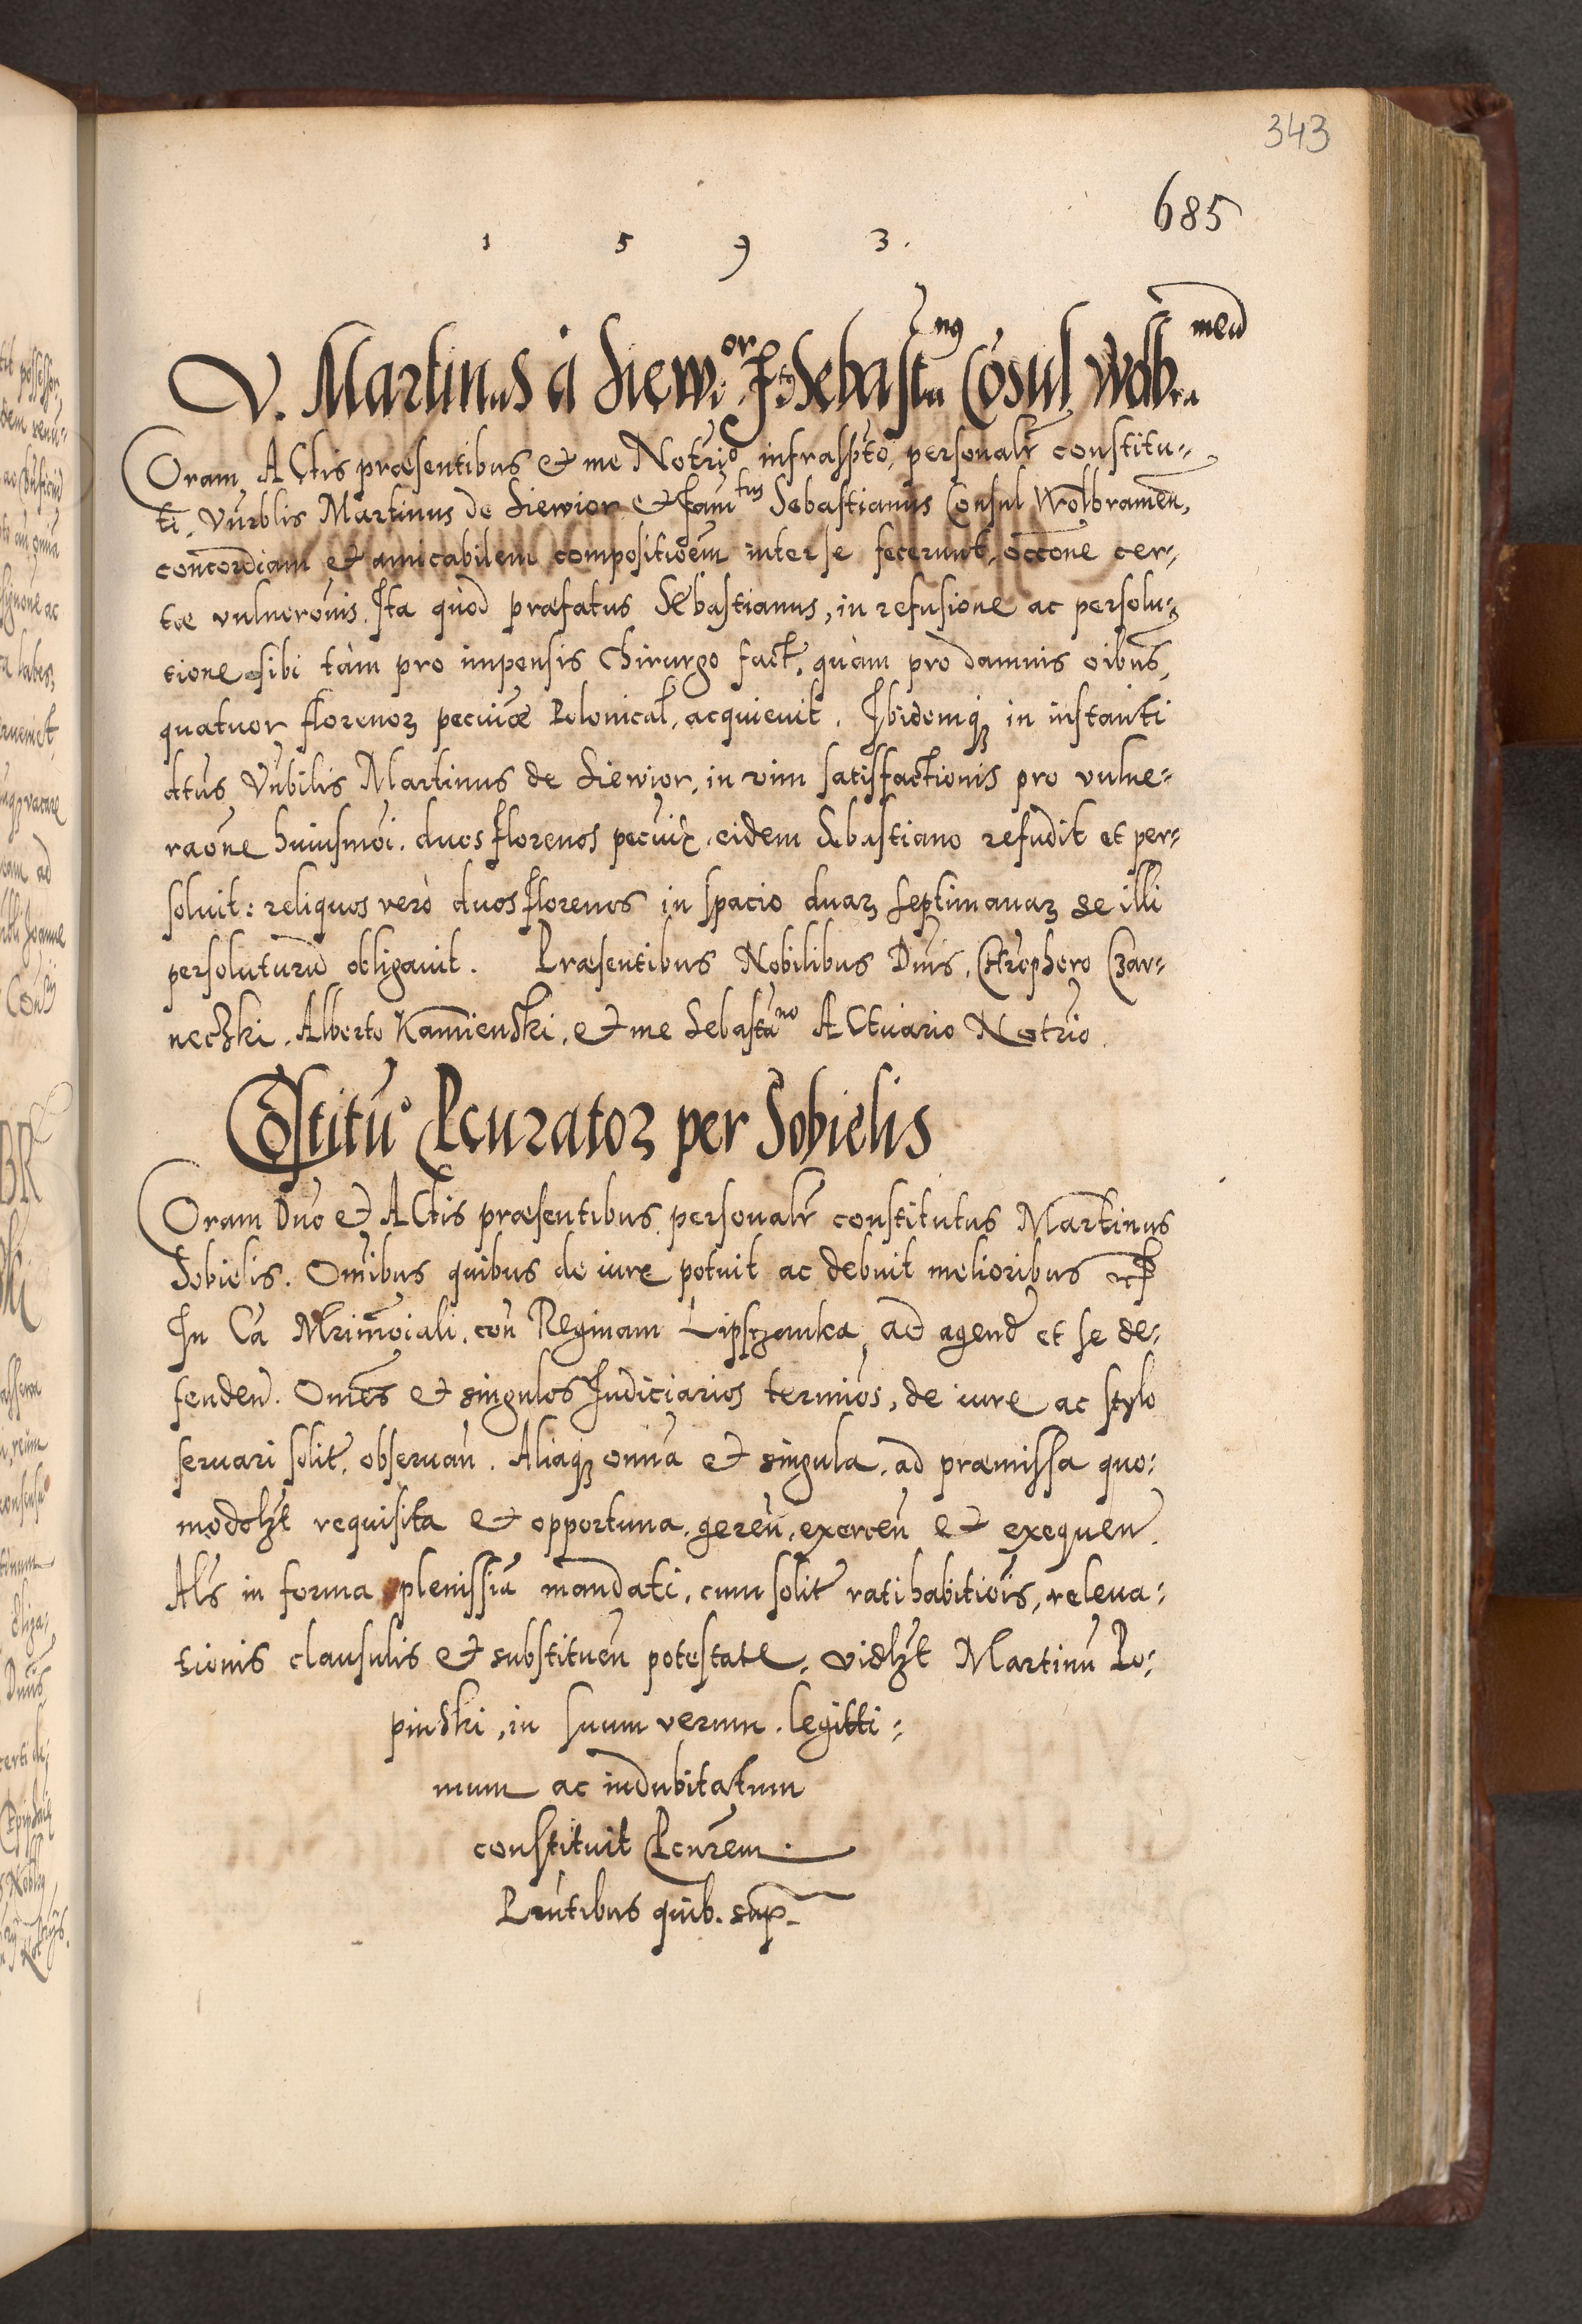 343
685
1 5 9 3.
V. Martinus à Siewior. F. Sebastianus Cōsul Wolbramen
Coram Actis præsentibus et me Notrio infrascpto, personalr constitu-
ti, Vnrblis Martinus de Siewior et Famtus Sebastianus Consul Wolbramen,
concordiam et amicabilem compositioem inter se fecerunt, occone cer-
tæ vulneronis. Ita quod præfatus Sebastianus, in refusione ac persolu-
tione sibi tàm pro impensis Chirurgo fact. quàm pro damnis oibus,
quatuor florenoꝝ pecuiæ Polonical. acquieuit. Ibidemqꝫ in instanti
dtus Vnbilis Martinus de Siewior, in vim satisfactionis pro vulne-
raone huiusmoi. duos florenos pecuiæ, eidem Sebastiano refudit et per-
soluit: reliquos verò duos florenos in spacio duaꝝ septimanaꝝ se illi
persoluturū obligauit. Præsentibus Nobilibus Dnis, Chrophoro Czar-
neczki, Alberto Kamienski, et me Sebastāno Actuario Notrio.
Cōstituo Pcuratoꝝ per Sobielis
Coram Dno et Actis præsentibus personalr constitutus Martinus
Sobielis. Omibus quibus de iure potuit ac debuit melioribus
In Ca Mrimoiali, con Reginam Lipsczanka, ad agend et se de-
fenden. Omēs et singulos Judiciarios termios, de iure ac stylo
seruari solit. obseruan. Aliaqꝫ omnia et singula, ad præmissa quo-
modolꝫt requisita et opportuna, geren, exercen et exequen.
Als in forma plenissia mandati, cum solit ratihabitiois, releua-
tionis clausulis et substituen potestate, vidlꝫt Martinū Po-
pinski, in suum verum, legitti-
mum ac indubitatum
constituit Pcurem.
Pntibus quib. sup.